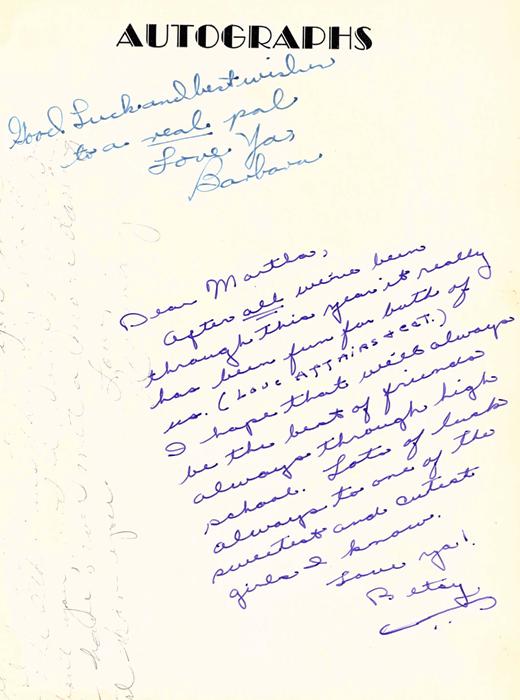 AUTOGRAPHS
Good Luck and best wishes
to a real pal
Love Ya,
Barbara
Dear Martha,
After all we've been
through this year it really
has been fun for both of
us. (LOVE AFFAIRS + ECT.)
I hope that we'll always
be the best of friends
always through high
school. Lots of luck
always to one of the
sweetest and cutest
girls I know.
Love ya!
Betsy